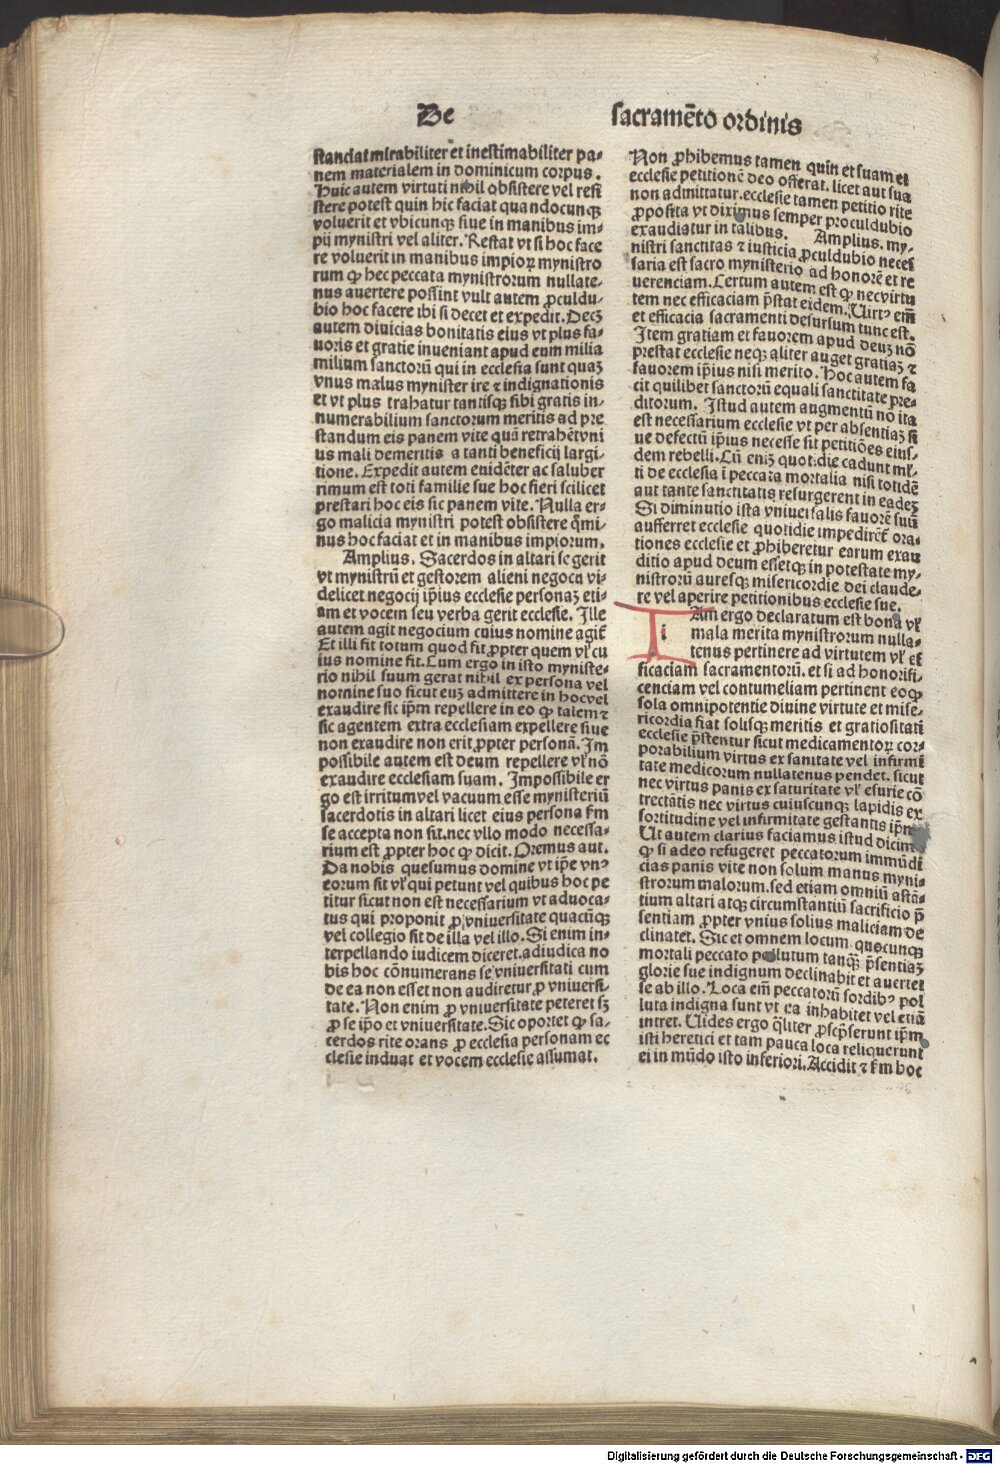 De sacramēto ordinis
stanciat mirabiliter et inestimabiliter pa⸗
nem materialem in dominicum corpus.
Huic autem virtuti nihil obsistere vel resi
stere potest quin hic faciat quandocunqȝ
voluerit et vbicunqȝ siue in manibus im⸗
pij mynistri vel aliter. Restat vt si hoc face
re voluerit in manibus impioꝝ mynistro
rum ꝙ hec peccata mynistrorum nullate⸗
nus auertere possint vult autem ꝓculdu⸗
bio hoc facere ibi si decet et expedit. Decȝ
autem diuicias bonitatis eius vt plus fa⸗
uoris et gratie inueniant apud eum milia
milium sanctorū qui in ecclesia sunt quaȝ
vnus malus mynister ire ⁊ indignationis
et vt plus trahatur tantisqȝ sibi gratis in⸗
numerabilium sanctorum meritis ad pre
standum eis panem vite quā retrahētvni
us mali demeritis a tanti beneficij largi⸗
tione. Expedit autem euidēter ac saluber
rimum est toti familie sue hoc fieri scilicet
prestari hoc eis sic panem vite. Nulla er⸗
go malicia mynistri potest obsistere q̄mi⸗
nus hoc faciat et in manibus impiorum.
Amplius. Sacerdos in altari se gerit
vt mynistrū et gestorem alieni negocij vi⸗
delicet negocij ip̄ius ecclesie personaȝ eti⸗
am et vocem seu verba gerit ecclesie. Ille
autem agit negocium cuius nomine agit̄
Et illi fit totum quod fit ꝓpter quem vꝉ cu
ius nomine fit. Cum ergo in isto mynisте⸗
rio nihil suum gerat nihil ex persona vel
nomine suo sicut euȝ admittere in hocvel
exaudire sic ip̄m repellere in eo ꝙ talem⁊
sic agentem extra ecclesiam expellere siue
non exaudire non erit ꝓpter personā. Im
possibile autem est deum repellere vꝉ nō
exaudire ecclesiam suam. Impossibile er
go est irritumvel vacuum esse mynisteriū
sacerdotis in altari licet eius persona ẜm
se accepta non sit. nec vllo modo necessa⸗
rium est ꝓpter hoc ꝙ dicit. Oremus aut.
Da nobis quesumus domine vt ip̄e vnꝰ
eorum sit vꝉ qui petunt vel quibus hoc pe
titur sicut non est necessarium vt aduoca⸗
tus qui proponit ꝓ vniuersitate quacūqȝ
vel collegio sit de illa vel illo. Si enim in⸗
terpellando iudicem diceret. adiudica no
bis hoc cōnumerans se vniuersitati cum
de ea non esset non audiretur ꝓ vniuersi⸗
tate. Non enim ꝓ vniuersitate peteret sȝ
ꝓ se ip̄o et vniuersitate. Sic oportet ꝙ sa⸗
cerdos rite orans ꝓ ecclesia personam ec
clesie induat et vocem ecclesie assumat.
Non ꝓhibemus tamen quin et suam et
ecclesie petitionē deo offerat. licet aut sua
non admittatur. ecclesie tamen petitio rite
ꝓposita vt diximus semper proculdubio
exaudiatur in talibus. Amplius. my⸗
nistri sanctitas ⁊ iusticia ꝓculdubio neces
saria est sacro mynisterio ad honorē et re
uerenciam. Certum autem est ꝙ necvirtu
tem nec efficaciam p̄stat eidem. Uirtꝰ em̄
et efficacia sacramenti desursum tunc est.
Item gratiam et fauorem apud deuȝ nō
prestat ecclesie neqȝ aliter auget gratiaȝ ⁊
fauorem ip̄ius nisi merito. Hoc autem fa
cit quilibet sanctorū equali sanctitate pre⸗
ditorum. Istud autem augmentū nō ita
est necessarium ecclesie vt per absentiaȝ si
ue defectū ip̄ius necesse sit petitiōes eius⸗
dem rebelli. Cū eniȝ quottidie cadunt ml̄⸗
ti de ecclesia ī peccata mortalia nisi totidē
aut tante sanctitatis resurgerent in eadeȝ
Si diminutio ista vniuersalis fauorē suū
aufferret ecclesie quotidie impediret̄ ora⸗
tiones ecclesie et ꝓhiberetur earum exau
ditio apud deum essetqȝ in potestate my⸗
nistrorū auresqȝ misericordie dei claude⸗
re vel aperire petitionibus ecclesie sue.
Iam ergo declaratum est bona vꝉ
mala merita mynistrorum nulla⸗
tenus pertinere ad virtutem vꝉ ef
ficaciam sacramentorū. et si ad honorifi⸗
cenciam vel contumeliam pertinent eoqȝ
sola omnipotentie diuine virtute et mise⸗
ricordia fiat solisqȝ meritis et gratiositati
ecclesie p̄stentur sicut medicamentoꝝ cor⸗
porabilium virtus ex sanitate vel infirmi
tate medicorum nullatenus pendet. sicut
nec virtus panis ex saturitate vꝉ esurie cō
trectātis nec virtus cuiuscunqȝ lapidis ex
fortitudine vel infirmitate gestantis ip̄m
Ut autem clarius faciamus istud dicim
ꝙ si adeo refugeret peccatorum immūdi
cias panis vite non solum manus myni⸗
strorum malorum. sed etiam omniū astā⸗
tium altari atqȝ circumstantiū sacrificio p̄
sentiam ꝓpter vnius solius maliciam de
clinaret. Sic et omnem locum quocunqȝ
mortali peccato pollutum tanqȝ p̄sentiaȝ
glorie sue indignum declinabit et auertet
se ab illo. Loca em̄ peccatorū sordibꝰ pol
luta indigna sunt vt ea inhabitet vel etiā
intret. Uides ergo q̄liter ꝓscp̄serunt ip̄m
isti heretici et tam pauca loca reliquerunt
ei in mūdo isto inferiori. Accidit ⁊ ẜm hoc
Digitalisierung gefördert durch die Deutsche Forschungsgemeinschaft - DFG